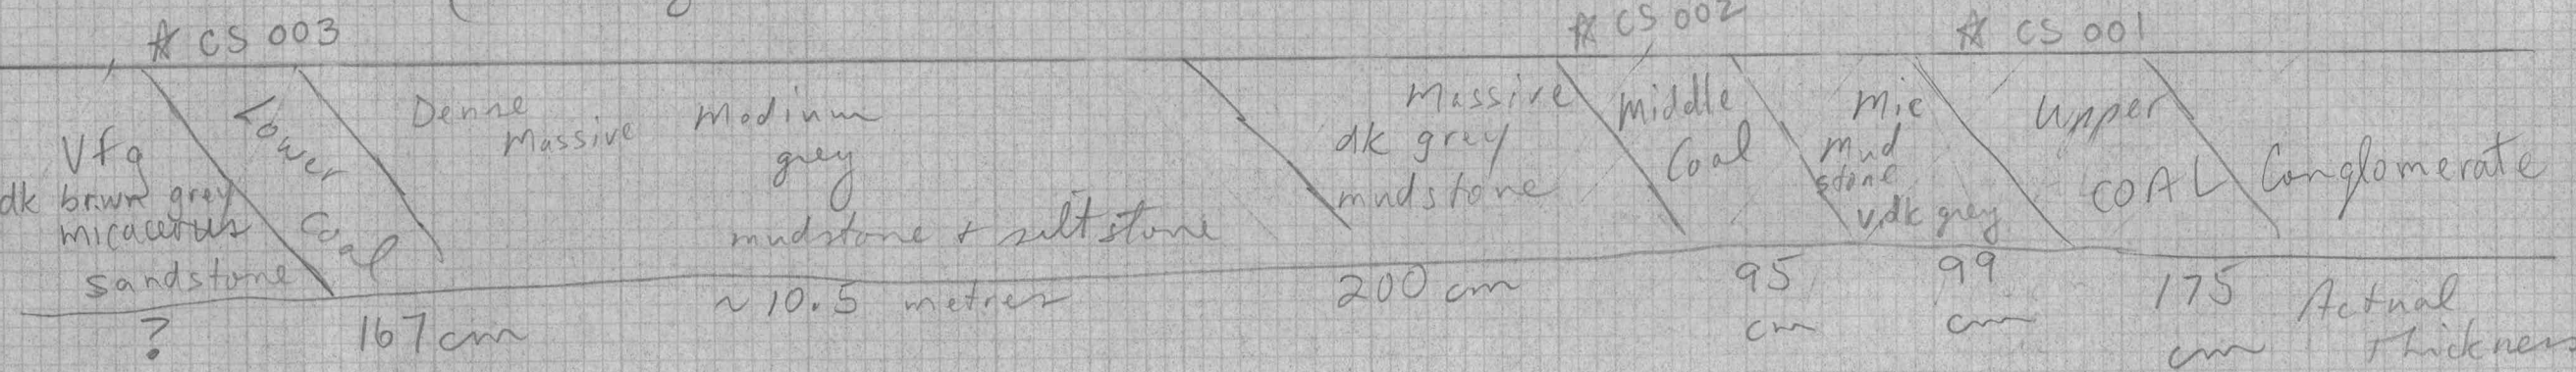 ☆ CS 003
☆ CS 002
☆ CS 001
Vfg
dk brwn grey
micaceous
sandstone
Lower
Coal
Dense
Massive
Medium
grey
mudstone + siltstone
Massive
dk grey
mudstone
Middle
Coal
Mic
Mud
stone
v.dk grey
Upper
COAL
Conglomerate
?
167 cm
~ 10.5 metres
200 cm
95
cm
99
cm
175
cm
Actual
thickness